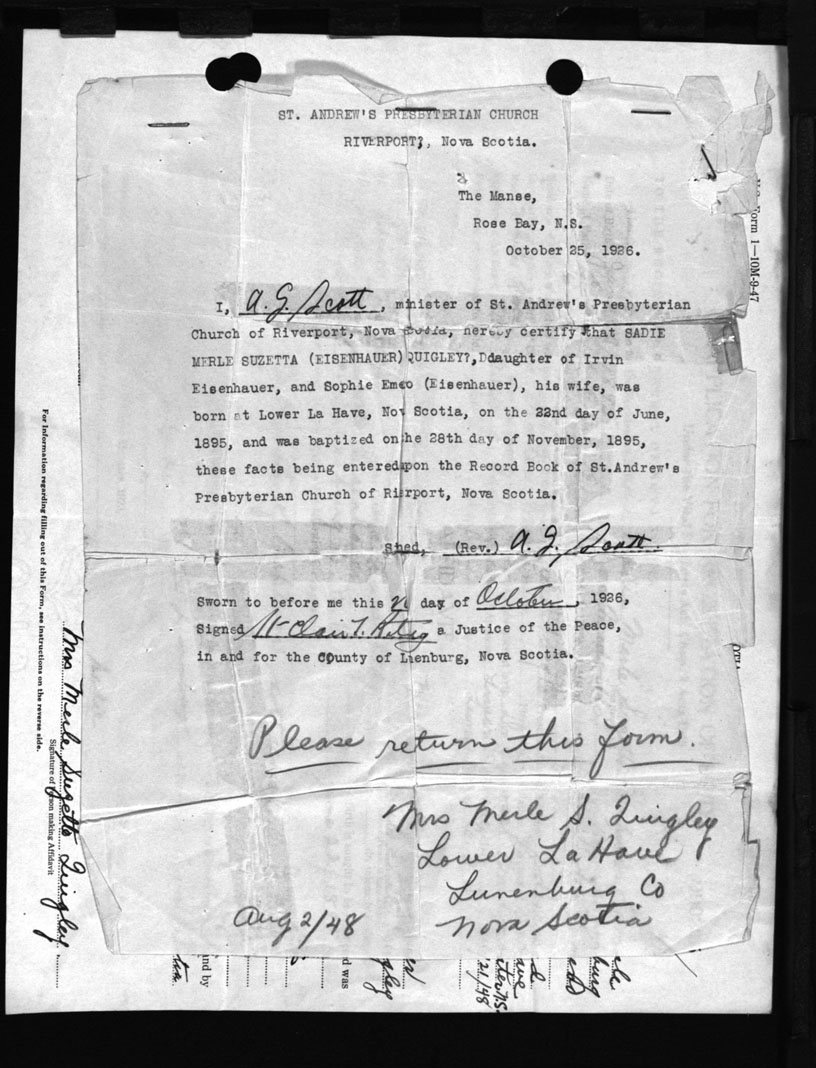 ST. ANDREW'S PRESBYTERIAN CHURCH
RIVERPORT?, Nova Scotia.
The Manse,
Rose Bay, N.S.
October 25, 1926.
I, A. G. Scott, minister of St. Andrew's Presbyterian
Church of Riverport, Nova Scotia, hereby certify that SADIE
MERLE SUZETTA (EISENHAUER) QUIGLEY?, Ddaughter of Irvin
Eisenhauer, and Sophie (Eisenhauer), his wife, was
born at Lower La Have, Nov Scotia, on the 22nd day of June,
1895, and was baptized on he 28th day of November, 1895,
these facts being entered pon the Record Book of St.Andrew's
Presbyterian Church of Rirport, Nova Scotia.
(Rev.) A. G. Scott
Sworn to before me this day of October, 1926,
Signed St Clair a Justice of the Peace,
in and for the County of Lienburg, Nova Scotia.
Please return this form.
Mrs Merle S. Quigley
Lower La Have
Lunenburg Co
Nova Scotia
Aug 2/48
Form 1—10M-9-47
For Information regarding filling out of this Form, see instructions on the reverse side.
Mrs Merle Suzetta Quigley
Signature of rson making Affidavit
nd by
d was
gley
21/48
burg